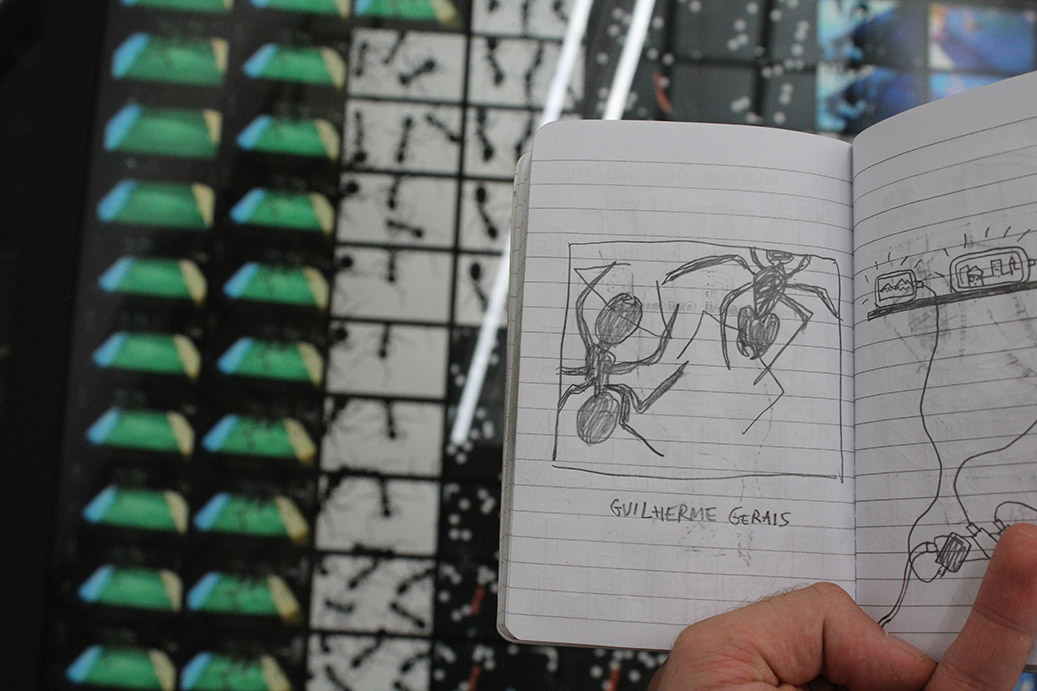 GUILHERME GERAIS